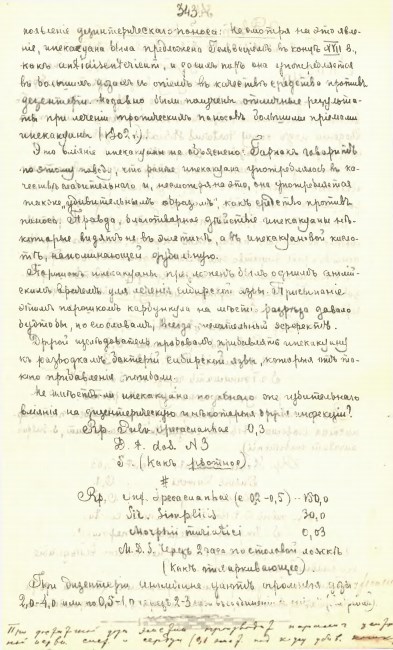 343.
появленіе дизентерическаго поноса. Несмотря на это явле-
ніе, ипекакуана была предложена Гельвеціемъ въ концѣ XVII в.,
какъ antidisentericum, и съ тѣхъ поръ она употребляется
въ большихъ дозахъ и опіемъ въ качествѣ средства противъ
дезентеріи. Недавно были получены отличные результа-
ты при леченіи тропическихъ поносовъ большими пріемами
ипекакуаны
Это вліяніе ипекакуаны не объяснено: говоритъ
по этому поводу, что ранѣе ипекакуана употреблялась въ ка-
чествѣ слабительнаго и, несмотря на это, она употребляется
также „удивительнымъ образомъ", какъ средство противъ
поноса. Правда, благотворное дѣйствіе ипекакуаны нѣ-
которые видятъ не въ эметинѣ, а въ ипекакуановой кисло-
тѣ, напоминающей дубильную.
Порошокъ ипекакуаны примѣненъ былъ однимъ англій-
скимъ врачомъ для леченія сибирской язвы. Присыпаніе
этимъ порошкомъ карбункула на мѣстѣ разрѣза давало
будто бы, по его словамъ, всегда желательный эффектъ.
Другой изслѣдователь пробовалъ прибавлять ипекакуану
къ разводкамъ бактерій сибирской язвы, которыя отъ та-
кого прибавленія погибали.
Не имѣетъ ли ипекакуана подобнаго же губительнаго
вліянія на дизентерическую и нѣкоторыя другія инфекціи?
Rp. Pulv. Ipecacuanhae 0,3
D. t. dos. N3
S. (Какъ рвотное).
#
Rp. Inf. Ipecacuanhae (e 0,2-0,5) — 150,0
Sir. Simplicis 30,0
Morphii muriatici 0,03
M. D. S. Черезъ 2 часа по столовой ложкѣ
(Какъ отхаркивающее).
При дизентеріи дают огромныя дозы
2,0-4,0 или по 0,5-1,0 2-3
При
нерви и сердца